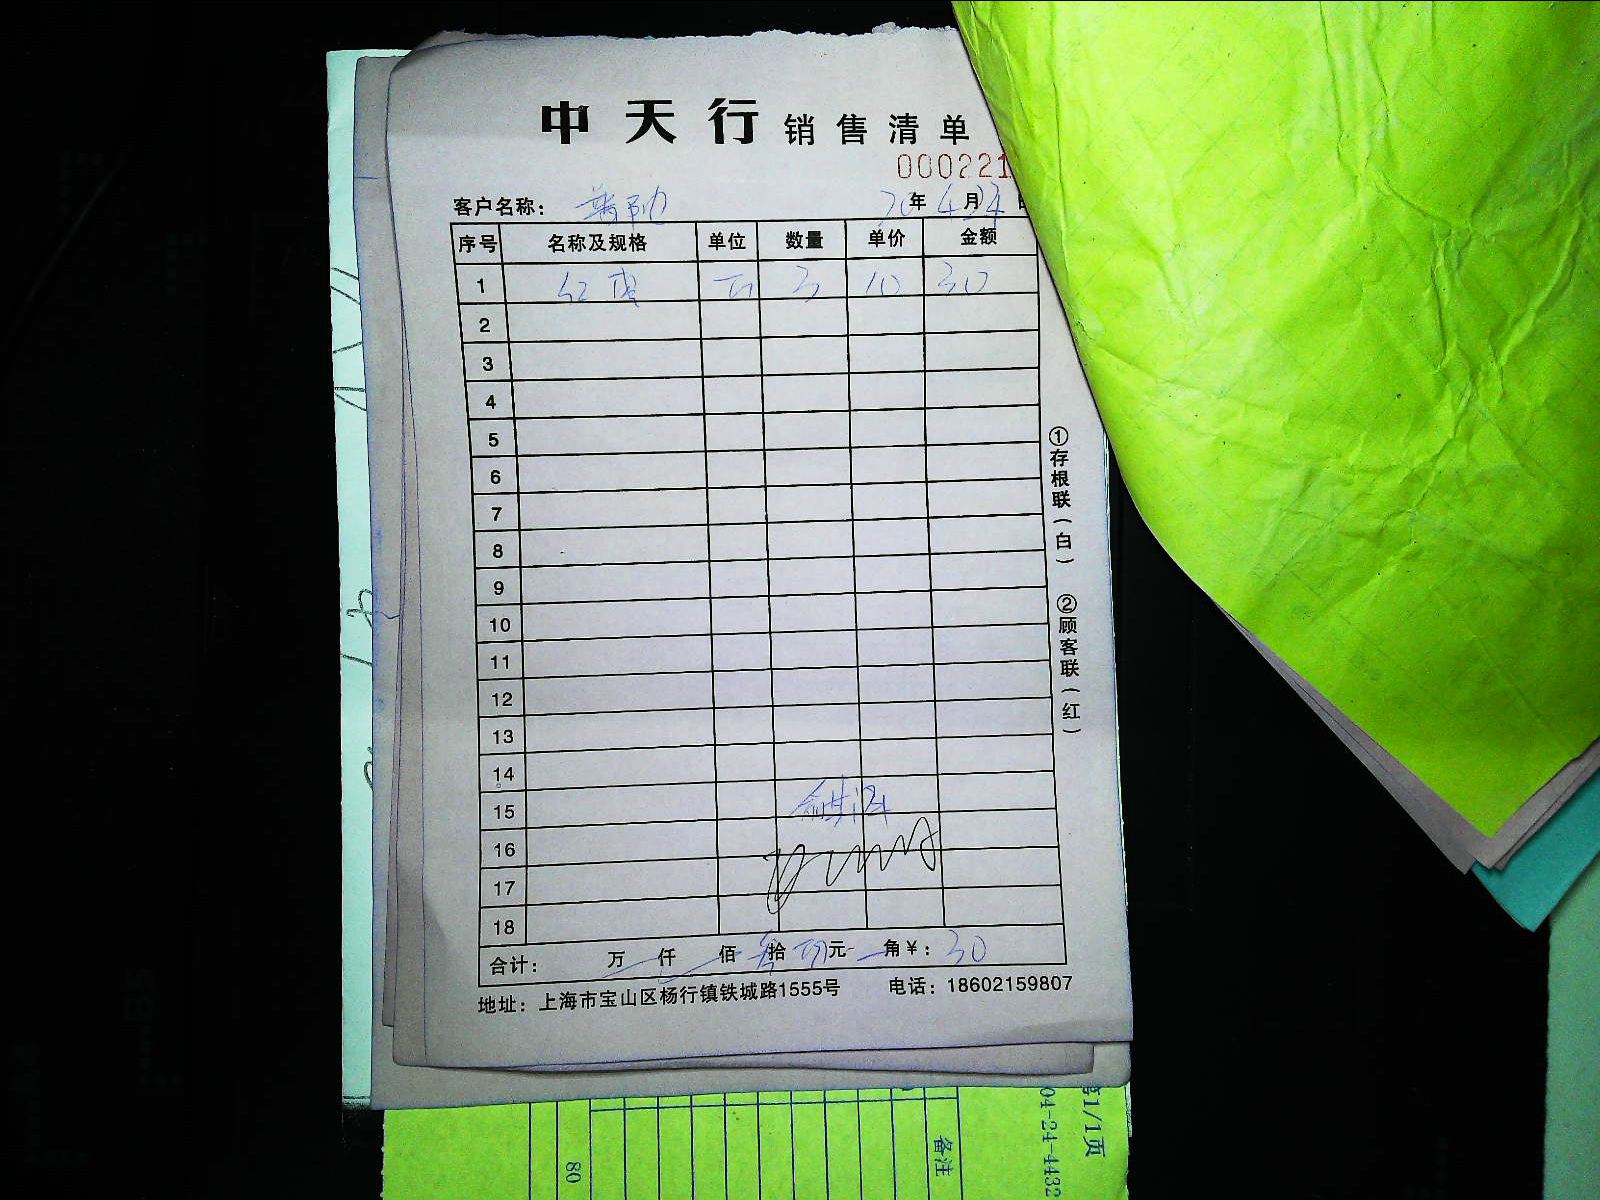 中天行 销售清单
000221
客户名称： 20年4月24
序号 名称及规格 单位 数量 单价 金额
1 红枣 斤 3 10 30
2
3
4
5
6
7
8
9
10
11
12
13
14
15
16
17
18
合计： 万 仟 佰 叁拾 元 角￥：30
地址：上海市宝山区杨行镇铁城路1555号 电话：18602159807
①存根联（白） ②顾客联（红）
80
备注
04-24-4432
第1/1页